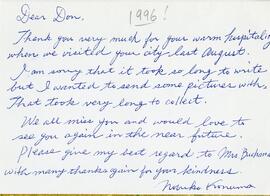 Dear Don, 1996!
Thank you very much for your warm hospitality
when we visited your city last August.
I am sorry that it took so long to write
but I wanted to send some pictures with.
That took very long to collect.
We all miss you and would love to
see you again in the near future.
Please give my best regard to Mrs
with many thanks again for your kindness.
Nobuko